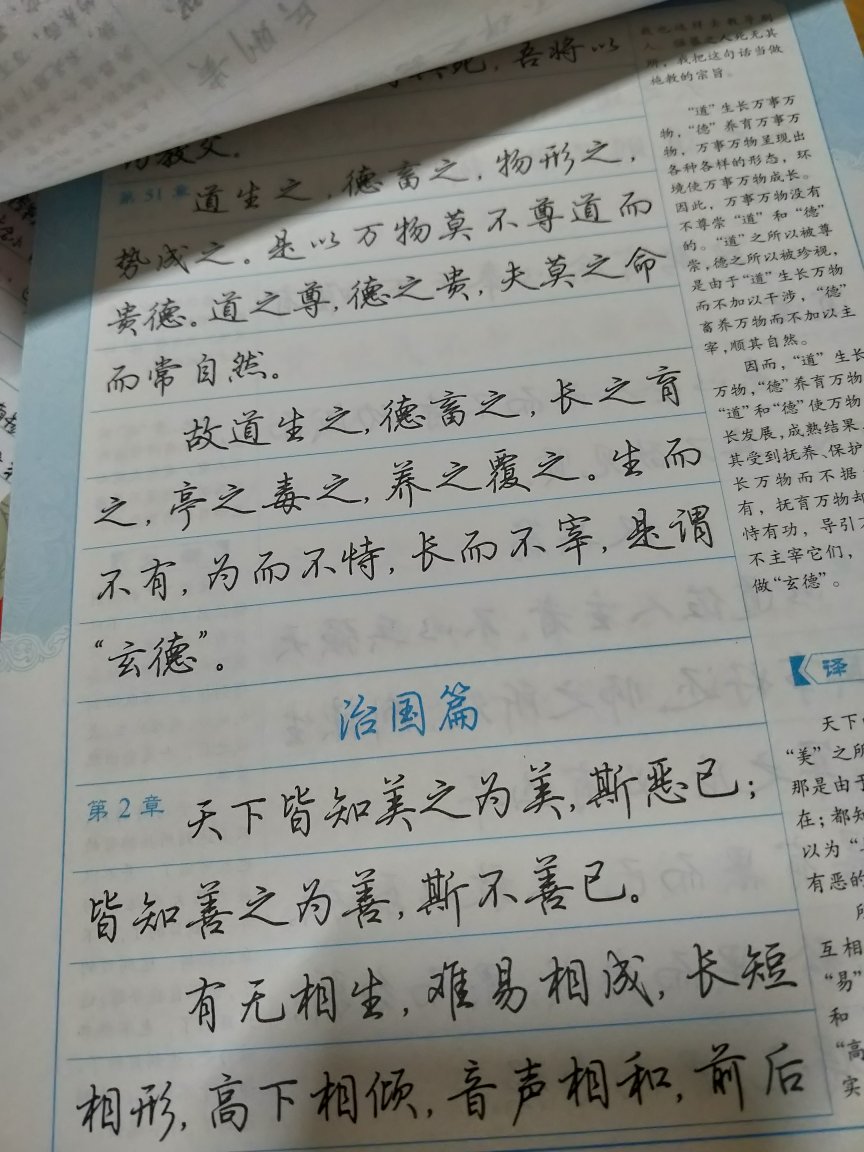 死，吾将以
教父。
第51章 道生之，德畜之，物形之，
势成之。是以万物莫不尊道而
贵德。道之尊，德之贵，夫莫之命
而常自然。
故道生之，德畜之，长之育
之，亭之毒之，养之覆之。生而
不有，为而不恃，长而不宰，是谓
“玄德”。
治国篇
第2章 天下皆知美之为美，斯恶已；
皆知善之为善，斯不善已。
有无相生，难易相成，长短
相形，高下相倾，音声相和，前后
我也这样去教导别
人。强暴之人死无其
所，我把这句话当做
施教的宗旨。
“道”生长万事万
物，“德”养育万事万
物，万事万物呈现出
各种各样的形态，环
境使万事万物成长。
因此，万事万物没有
不尊崇“道”和“德”
的。“道”之所以被尊
崇，德之所以被珍视，
是由于“道”生长万物
而不加以干涉，“德”
畜养万物而不加以主
宰，顺其自然。
因而，“道”生长
万物，“德”养育万物
“道”和“德”使万物
长发展，成熟结果，
其受到抚养、保护
长万物而不据
有，抚育万物却
恃有功，导引
不主宰它们，
做“玄德”。
译
天下
“美”之所
那是由于
在；都知
以为“
有恶的
所
互相
“易”
和
“高
实